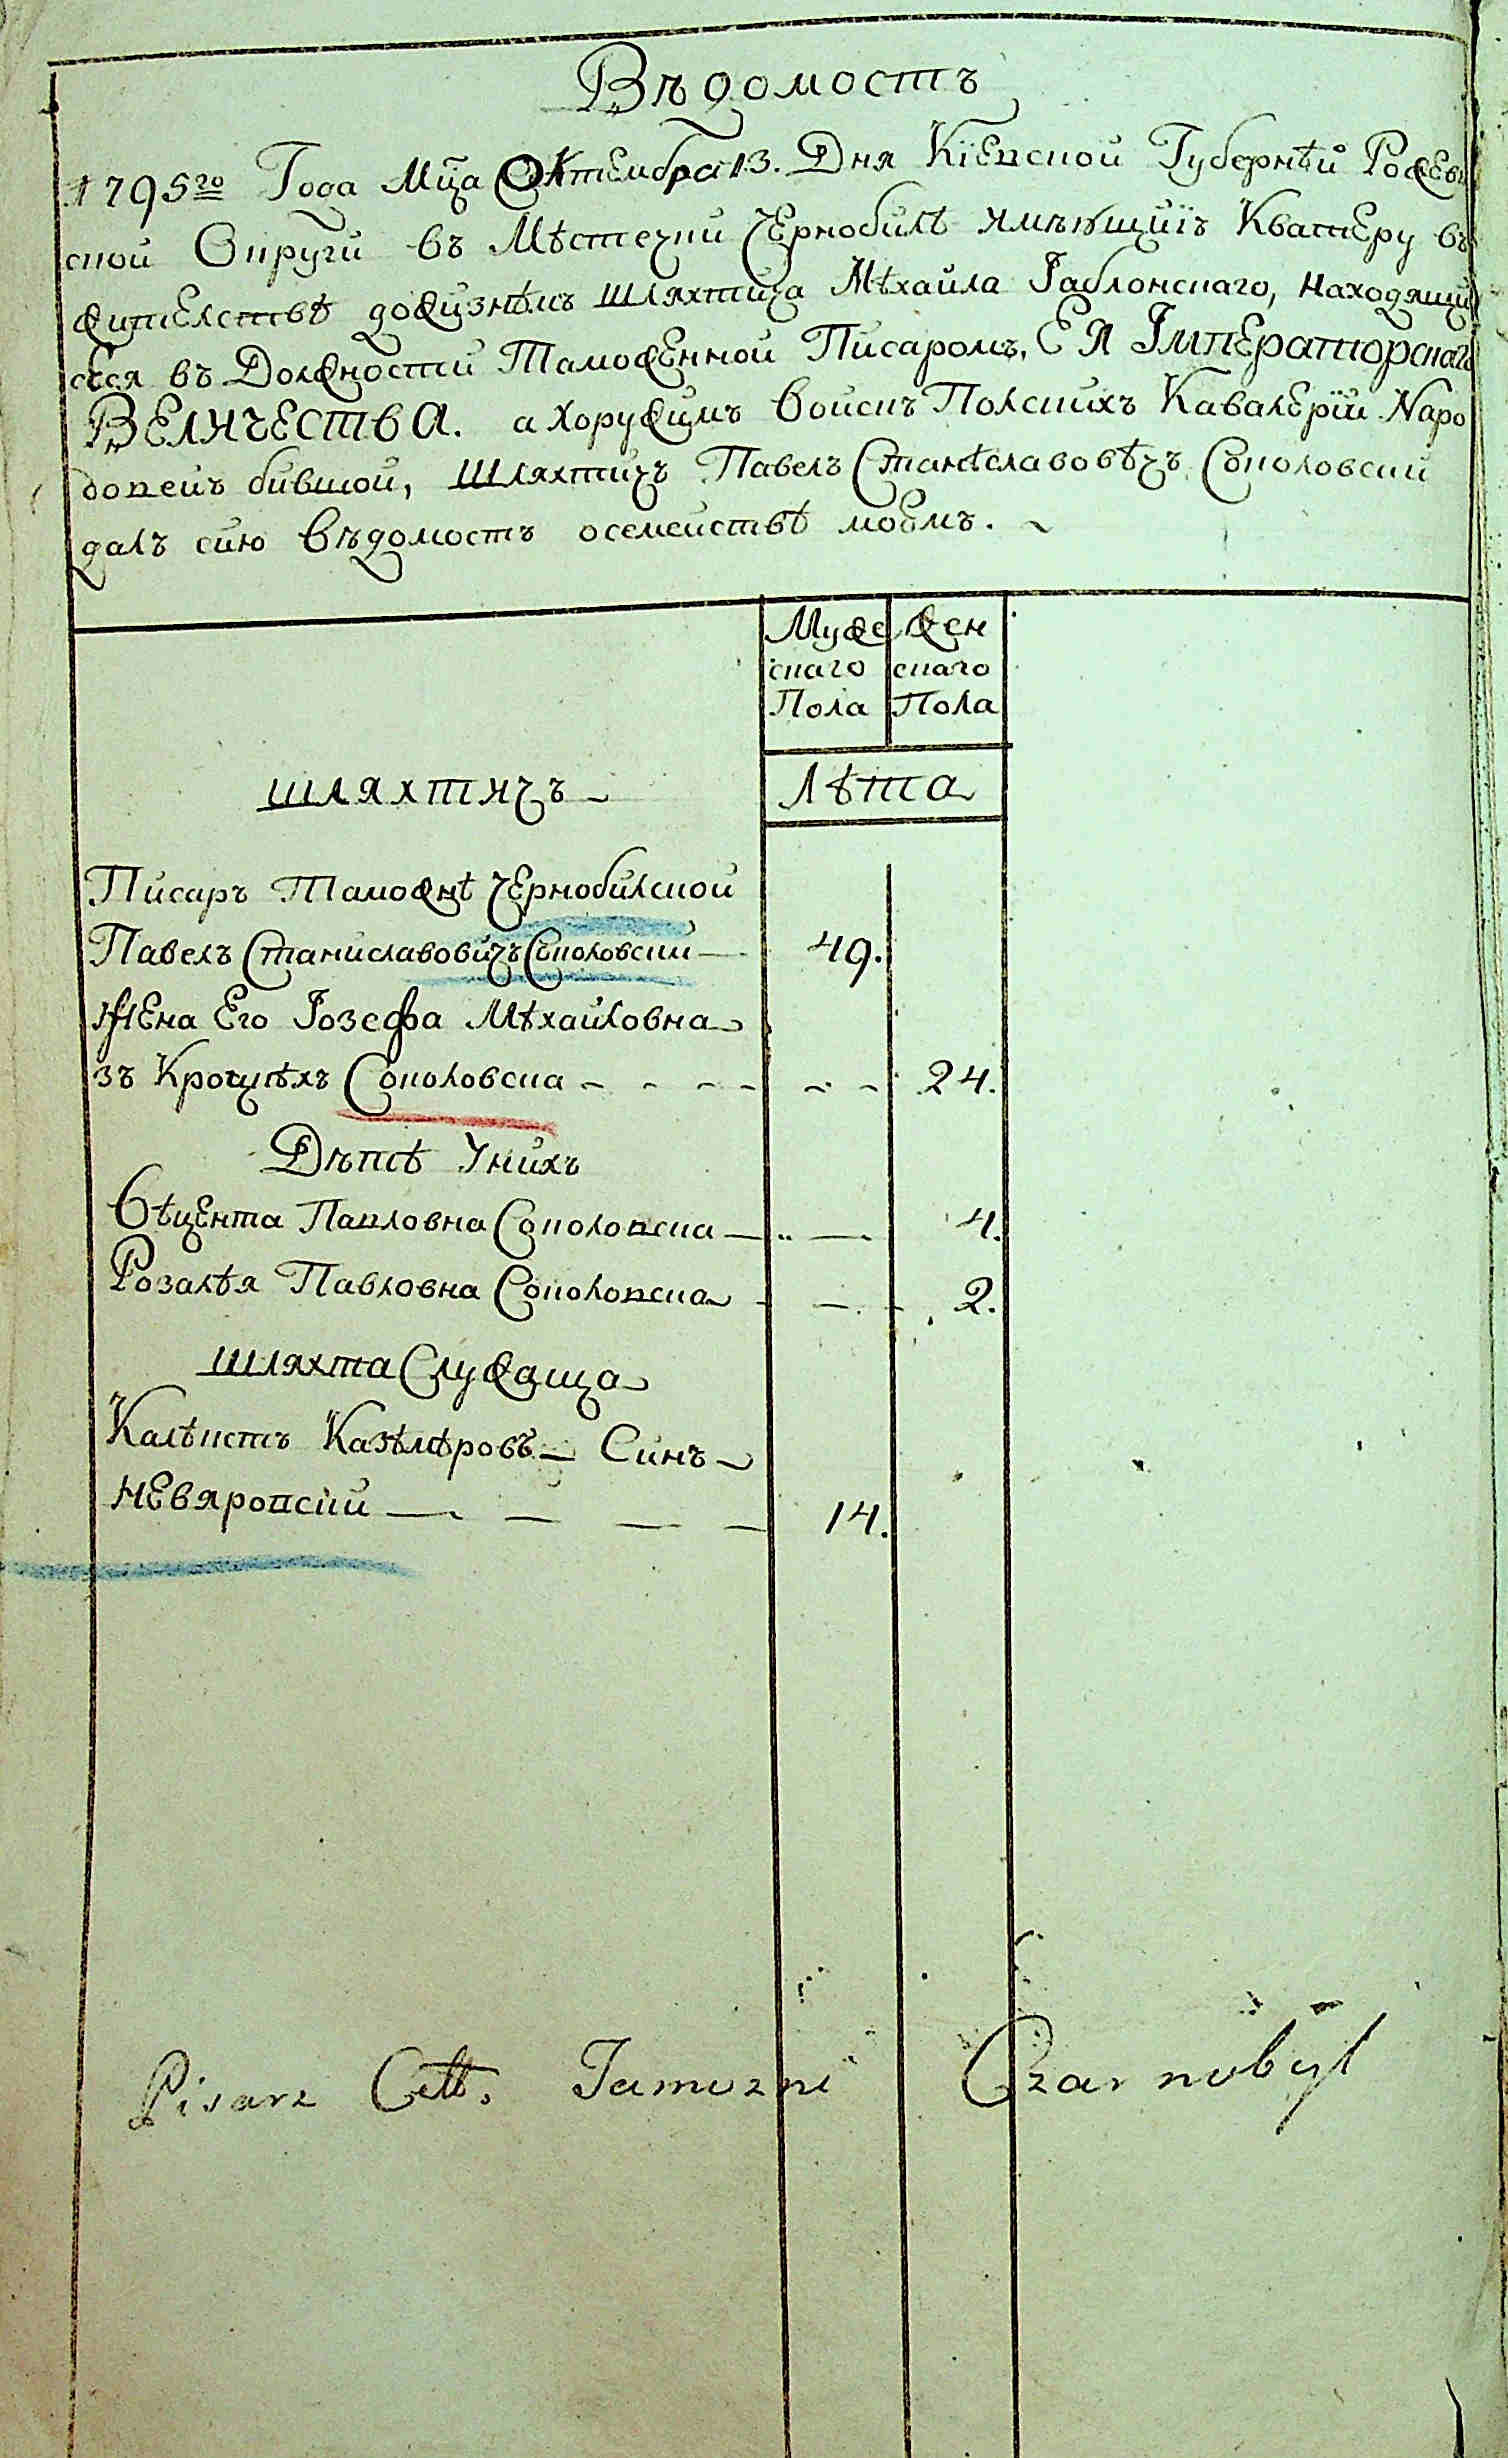 Вѣдомость
1795го Года Мца Октембра 13. Дня Кіевской Губернѣи Рожев
ской Округи въ Мѣстечки Чернобилѣ имѣющиїъ Кватеру въ
жителствѣ дожизнѣмъ Шляхтица Мѣхайла Іаблонскаго, находящи
сѣся въ Должности Таможенной Писаромъ, ЕЯ Імператорскаго
ВЕЛИЧЕСТВА. а Хоружимъ Войскъ Полскихъ Кавалеріи Naро
довей бившой, Шляхтичъ Павелъ Станѣславовѣчъ Соколовскій
далъ сию вѣдомость осемействѣ моемъ.
Муже Жен
скаго скаго
Пола Пола
шляхтичъ Лѣта
Писаръ Таможнѣ Чернобилской
Павелъ Станиславовичъ Соколовскій 49.
Жена Его Іозефа Мѣхайловна
зъ Кроцкѣхъ Соколовска 24.
Дѣтѣ Унихъ
Вѣцента Павловна Соколовска 4.
Розалѣя Павловна Соколовска 2.
шляхта Служаща
Калѣкстъ Казѣмѣровъ Синъ
Невяровскій 14.
Pisarz Cełł. Tamozni Czarnobyl